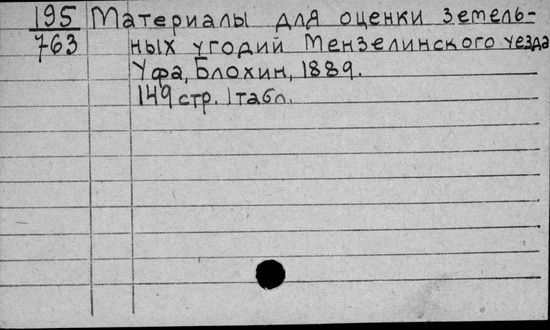 195 Материалы для оценки земель-
763 ных угодий Мензелинского уезда
Уфа, Блохин, 1889.
149 стр. 1 табл.